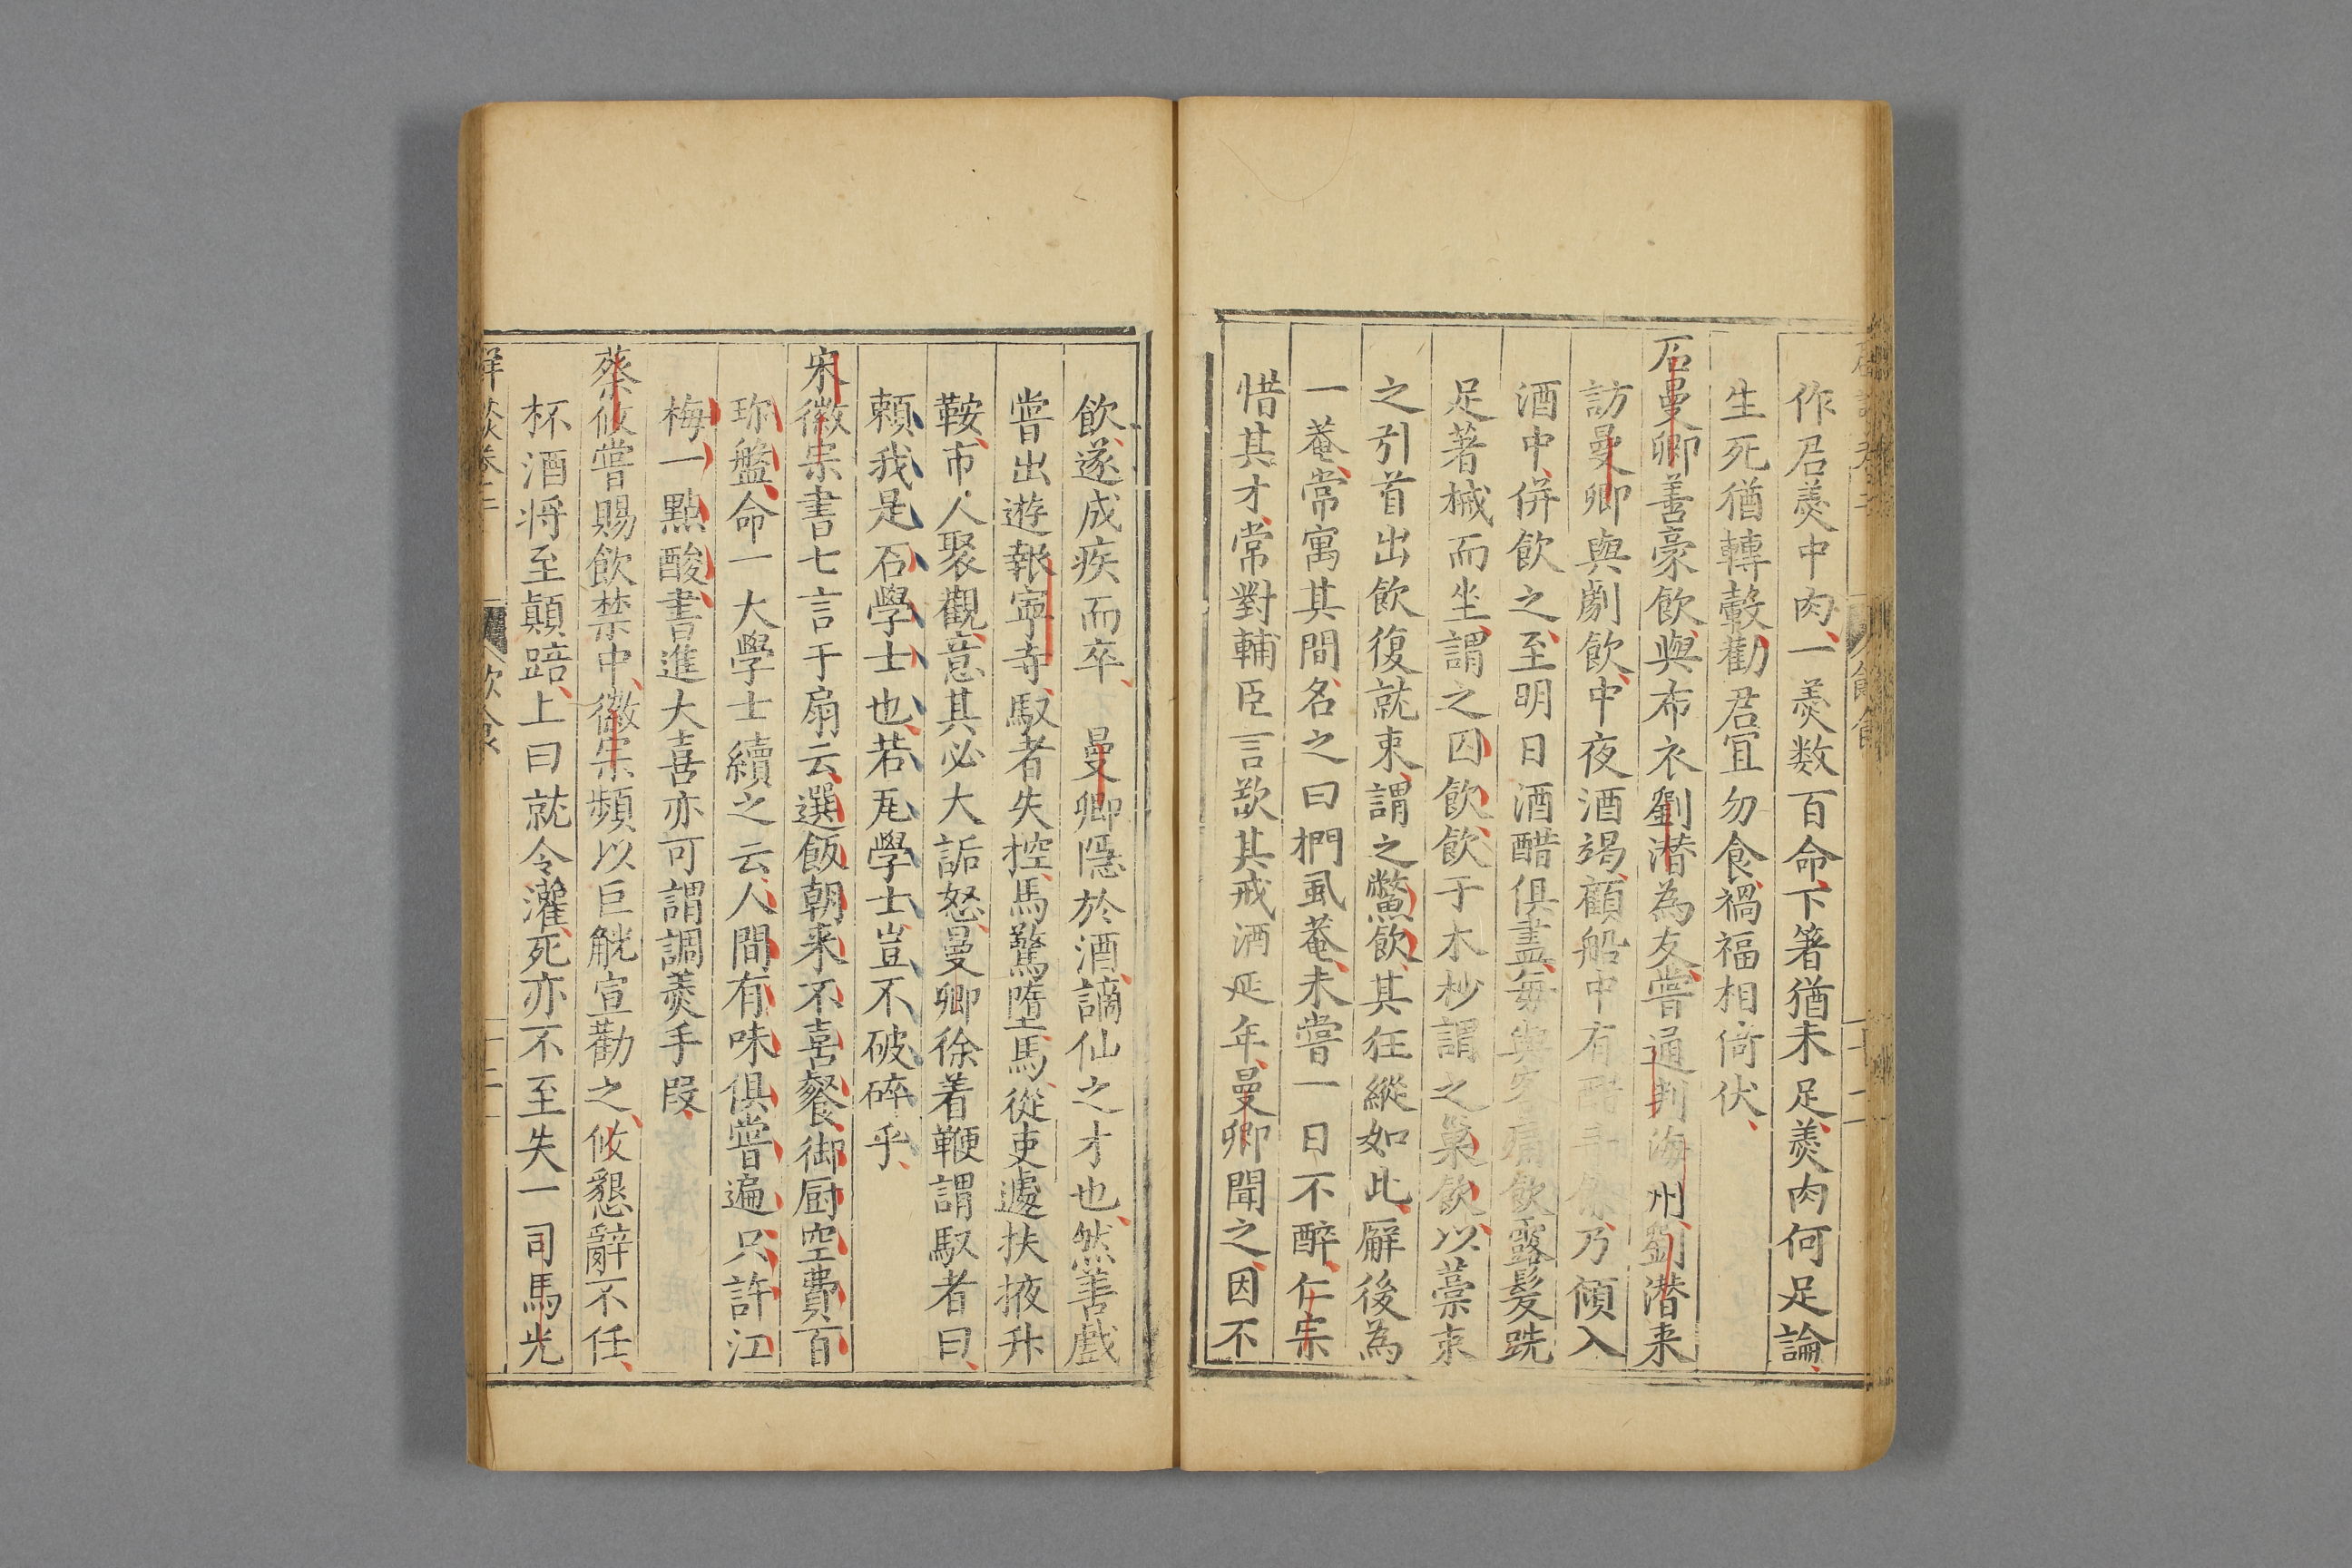 作君羹中肉一羹数百命下箸猶未足羹肉何足論
生死猶轉轂勸君宜勿食禍福相倚伏
石曼卿善豪飲與布衣劉潜為友嘗通判海州劉潜来
訪曼卿與劇飲中夜酒竭顧船中有醋斗餘乃傾入
酒中併飲之至明日酒醋俱盡每與客痛飲露髮跣
足著械而坐謂之囚飲飲于木杪謂之巢飲以藁束
之引首出飲復就束謂之鱉飲其狂縱如此廨後為
一菴常寓其間名之曰捫虱菴未嘗一日不醉仁宗
惜其才常對輔臣言歎其戒酒延年曼卿聞之因不
飲遂成疾而卒 曼卿隱於酒謫仙之才也然善戲
嘗出遊報寧寺馭者失控馬驚墮馬從吏遽扶掖升
鞍市人聚觀意其必大詬怒曼卿徐着鞭謂馭者曰
賴我是石學士也若瓦學士豈不破碎乎
宋徽宗書七言于扇云選飯朝来不喜餐御厨空費百
珎盤命一大學士續之云人間有味俱嘗遍只許江
梅一點酸書進大喜亦可謂調羹手段
蔡攸嘗賜飲禁中徽宗頻以巨觥宣勸之攸懇辭不任
杯酒将至顛踣上曰就令灌死亦不至失一司馬光
飲食
十二